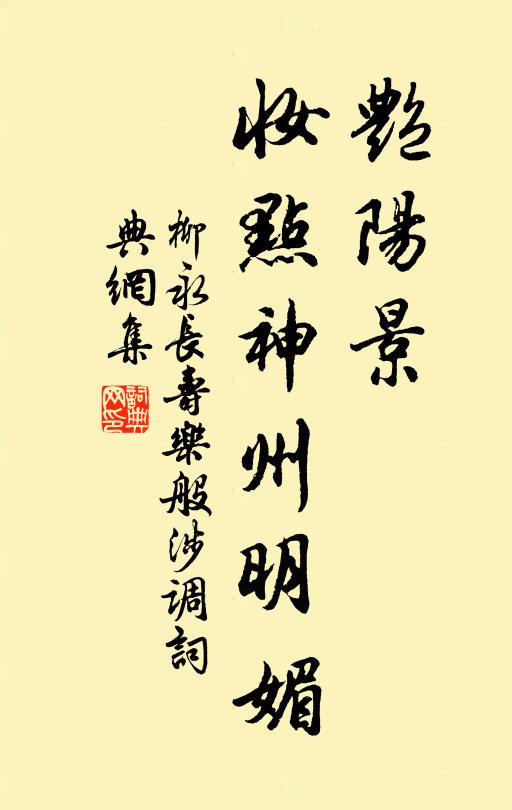 艷陽景
妝點神州明媚
柳永長壽樂般涉調詞
典網集
詞典網印